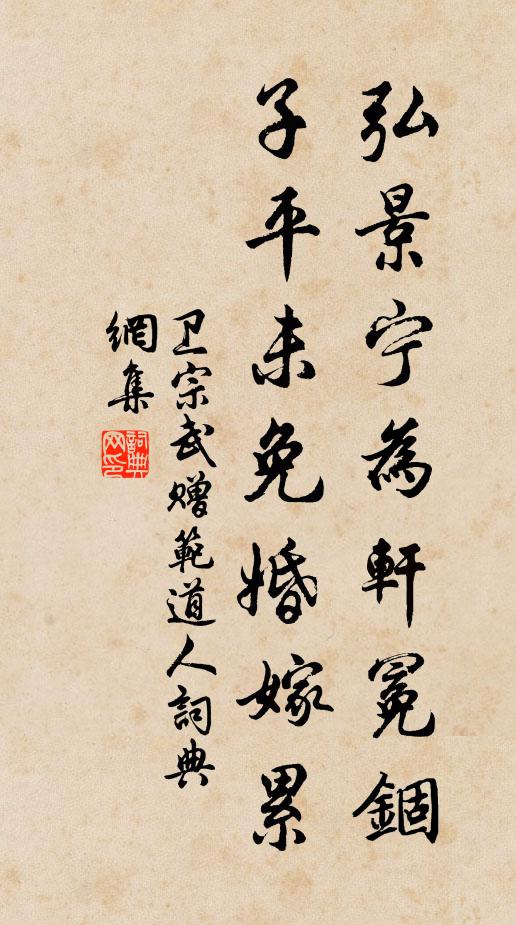 弘景宁為軒冕錮
子平未免婚嫁累
卫宗武赠範道人詞典
網集
詞典
网印